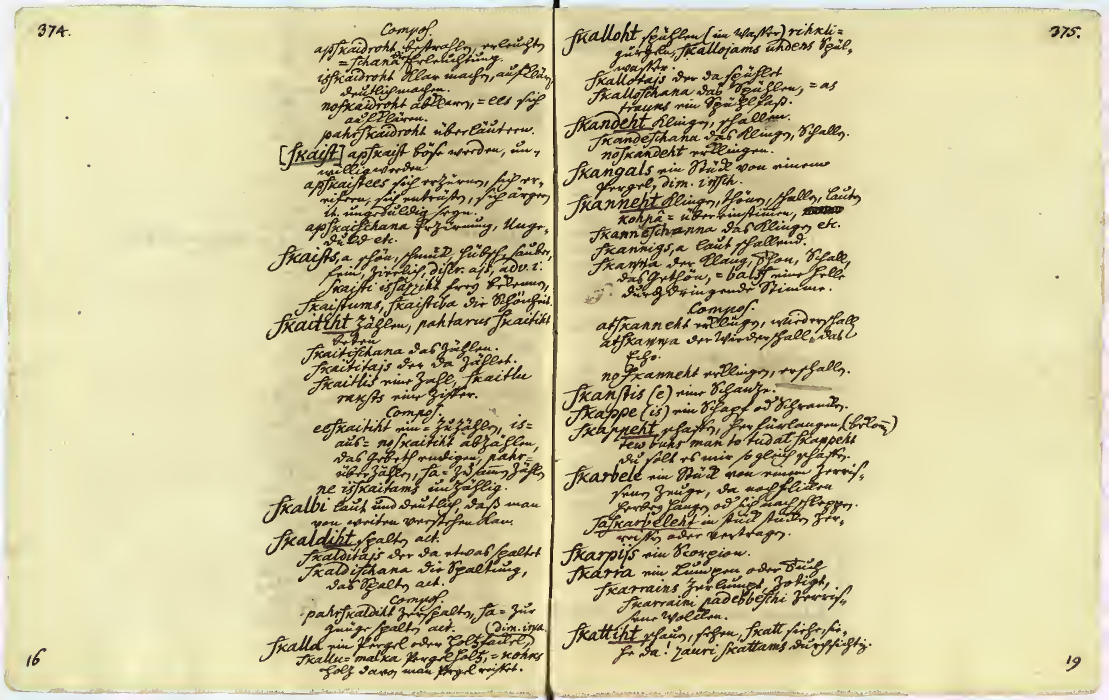 374.
Compos.
apskaidroht bestrahlen, erleuchten
=schana Erleuchtung.
isskaidroht klar machen, aufklären
deutlich machen.
noskaidroht abklären, =ees sich
aufklären.
pahrskaidroht überläutern.
[skaist] apskaist böse werden, un-
willig werden
apskaistees sich erzürnen, sich er-
eifern, sich entrüsten, sich ärgern
it. ungeduldig seyn.
apskaischana Erzürnung, Unge-
duld etc.
skaists, a schön, schmuck, hübsch, sauber,
fein, zierlich, adv. i.
skaisti frey bekennen,
skaistums, skaistiba die Schönheit.
skaitiht zählen, pahtarus skaitiht
beten
skaitischana das Zählen.
skaititajs der da zählet.
skaitlis eine Zahl, skaitlu
raksts eine Ziffer.
Compos.
eeskaitiht ein= zuzählen, is=
aus= noskaitiht abzählen,
das Gebeth endigen, pahr=
überzählen, sa= zusammen zählen
ne isskaitams unzählig.
skalbi laut und deutlich, daß man
von weiten verstehen kan.
skaldiht spalten act.
skalditajs der da etwas spaltet
skaldischana die Spaltung,
das Spalten act.
Compos.
pahrskaldiht zerspalten, sa= zur
gnüge spalten act. (dim. ina
skalla ein Pergel oder Holzfackel,)
skallu= malka Pergelholz, =kohks
Holz davon man Pergel reisset.
16
375.
skalloht spühlen (in Wasser) rihkli=
gurgeln, skallojams uhdens Spül-
wasser.
skallotajs der da spühlet
skalloschana das Spühlen, =as
trauks ein Spühlfaß.
skandeht klingen, schallen.
skandeschana das Klingen, Schallen.
noskandeht erklingen.
skangals ein Stück von einem
Pergel, dim. insch.
skanneht klingen, thönen, schallen, lauten
kohpâ= übereinstimen,
skanneschanna das Klingen etc.
skannigs, a laut schallend.
skanna der Klang, Thon, Schall,
das Gethön, =balss eine helle
durchdringende Stimme.
Compos.
atskanneht erklingen, wiederschallen
atskanna der Wiederschall, das
Echo.
noskanneht erklingen, erschallen.
skanstis (e) eine Schanze.
skappe (is) ein Schapf od Schrancken.
skappeht schaffen, herfürlangen (belon̄)
tew buhs man to tudal skappeht
du solt es mir so gleich schaffen.
skarbele ein Stück von einem zerris-
senen Zeuge, da noch flicken
herbey hangen od sich nach schleppen.
saskarbeleht in stück stücken zer-
reissen oder vertragen.
skarpijs ein Scorpion.
skarra ein Lumpen oder
skarrains zerlumpt, zotigt,
skarraini padebbeschi zerris-
sene Wolcken.
skattiht schauen, sehen, skatt siehe, sie-
he da! zauri skattams durchsichtig.
19